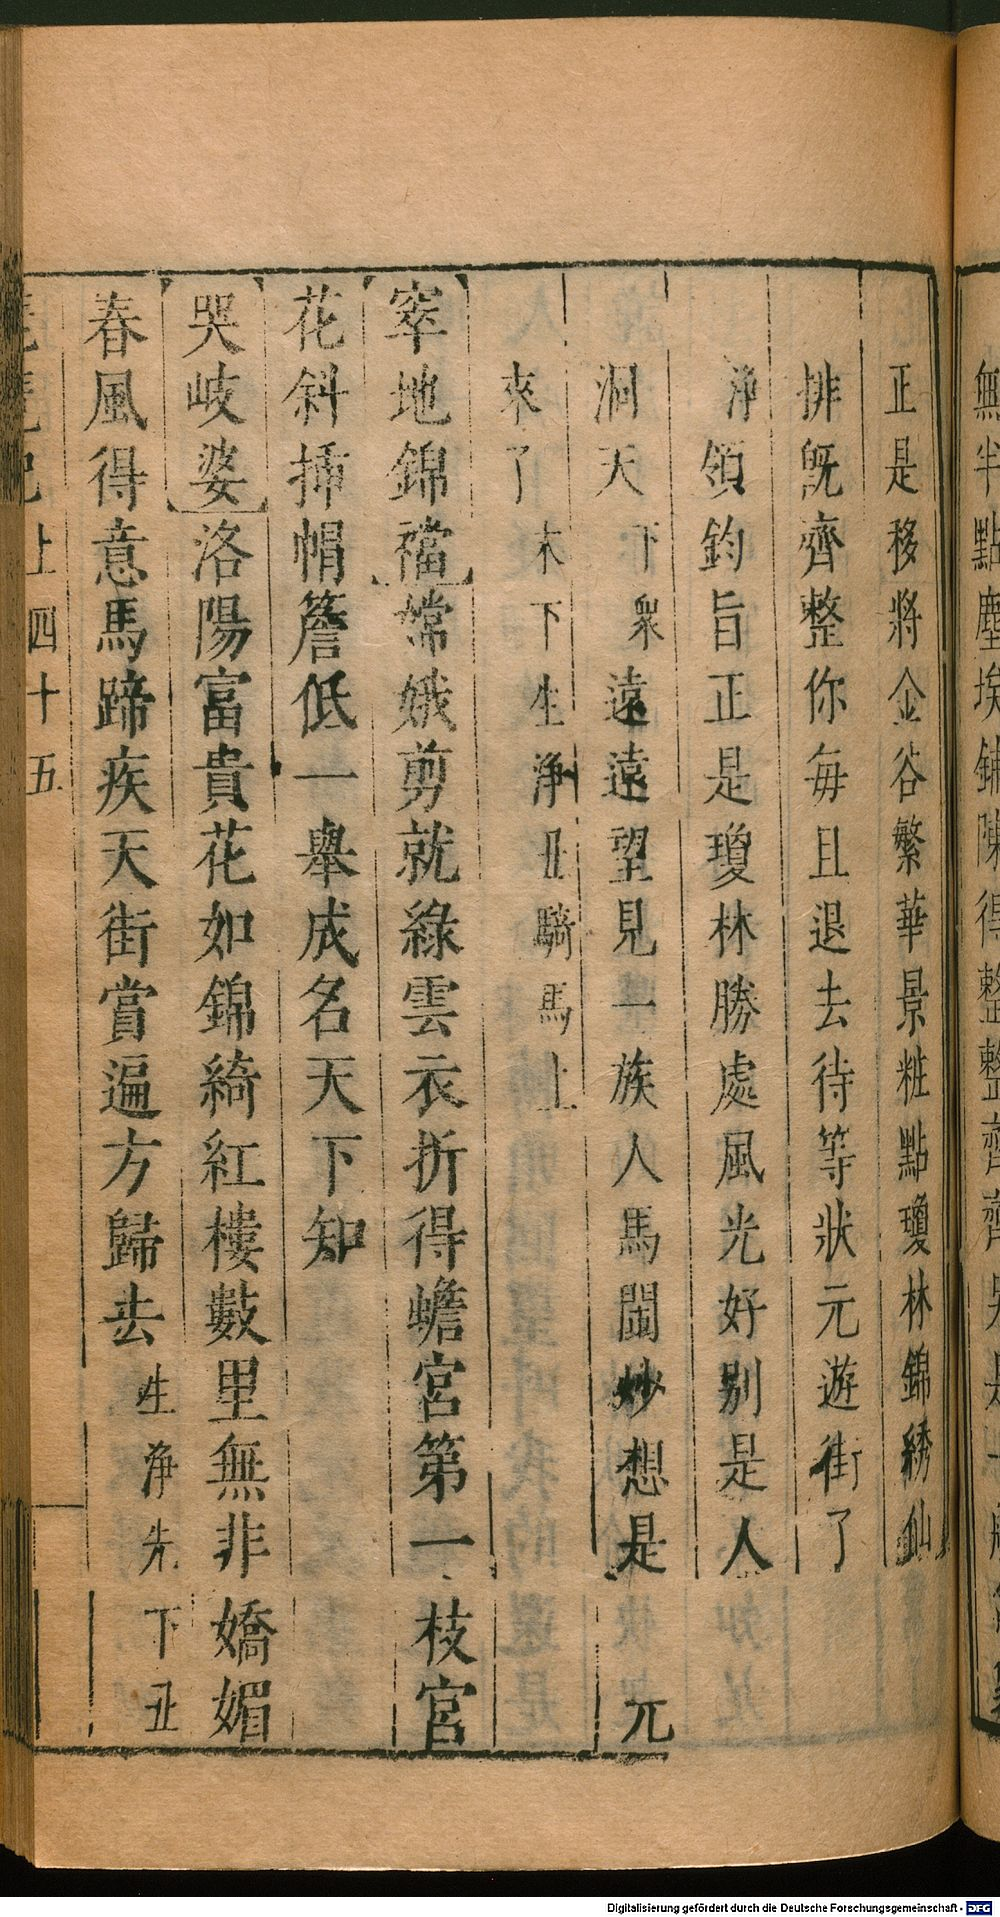 正是移將金谷繁華景粧點瓊林錦綉仙
排旣齊整你每且退去待等狀元遊街了
淨領鈞旨正是瓊林勝處風光好别是人
洞天下衆遠遠望見一族人馬閙妙想是元
來了末下生淨丑騎馬上
窣地錦襠嫦娥剪就綠雲衣折得蟾宮第一枝宮
花斜揷帽簷低一舉成名天下知
哭岐婆洛陽富貴花如錦綺紅樓數里無非嬌媚
春風得意馬蹄疾天街賞遍方歸去生淨先下丑
上四十五
無半點塵埃鋪陳得整整齊齊
Digitalisierung gefördert durch die Deutsche Forschungsgemeinschaft - DFG